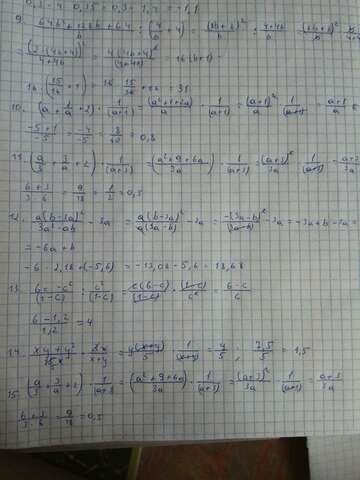 9. (64b² + 128b + 64)/b : (4/b + 4) = (8b+8)²/b : (4+4b)/b =
= 4(4b+4)²/(4+4b) = 16(b+1)
16·(15/16 + 1) = 16·15/16 + 16 = 31
10. (a + 1/a + 2) · 1/(a+1) = (a²+1+2a)/a · 1/(a+1) = (a+1)²/a · 1/(a+1) = (a+1)/a
(-5+1)/-5 = -4/-5 = 8/10 = 0,8
11. (a/3 + 3/a + 2) · 1/(a+3) = (a²+9+6a)/3a · 1/(a+3) = (a+3)²/3a · 1/(a+3) = (a+3)/3a
(6+3)/3·6 = 9/18 = 1/2 = 0,5
12. a(b-3a)²/(3a²-ab) - 3a = a(b-3a)²/a(3a-b) - 3a = -(3a-b)²/(3a-b) - 3a = -3a+b-3a =
= -6a + b
-6 · 2,18 + (-5,6) = -13,08 - 5,6 = 18,68
13. (6c - c²)/(1-c) : c²/(1-c) = c(6-c)/(1-c) · (1-c)/c² = (6-c)/c
(6-1,2)/1,2 = 4
14. (xy + y²)/15x · 3x/(x+y) = y(x+y)/5 · 1/(x+y) = y/5 ; 7,5/5 = 1,5
15. (a/3 + 3/a + 2) · 1/(a+3) = (a²+9+6a)/3a · 1/(a+3) = (a+3)²/3a · 1/(a+3) = (a+3)/3a
= 9/18 = 0,5